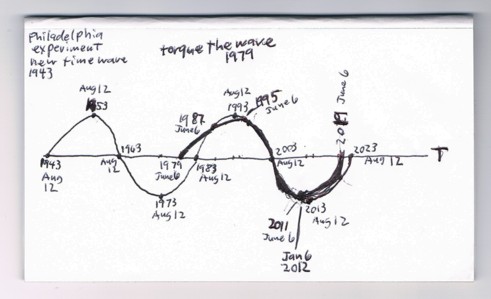 Philadelphia
experiment
new time wave
1943
torque the wave
1979
Aug 12
1953
Aug 12
1993
1995
June 6
1987
June 6
2019 June 6
1943
Aug
12
1963
Aug
12
1979
June 6
1983
Aug 12
2003
Aug 12
2023
Aug 12
T
1973
Aug 12
2013
Aug 12
2011
June 6
Jan 6
2012